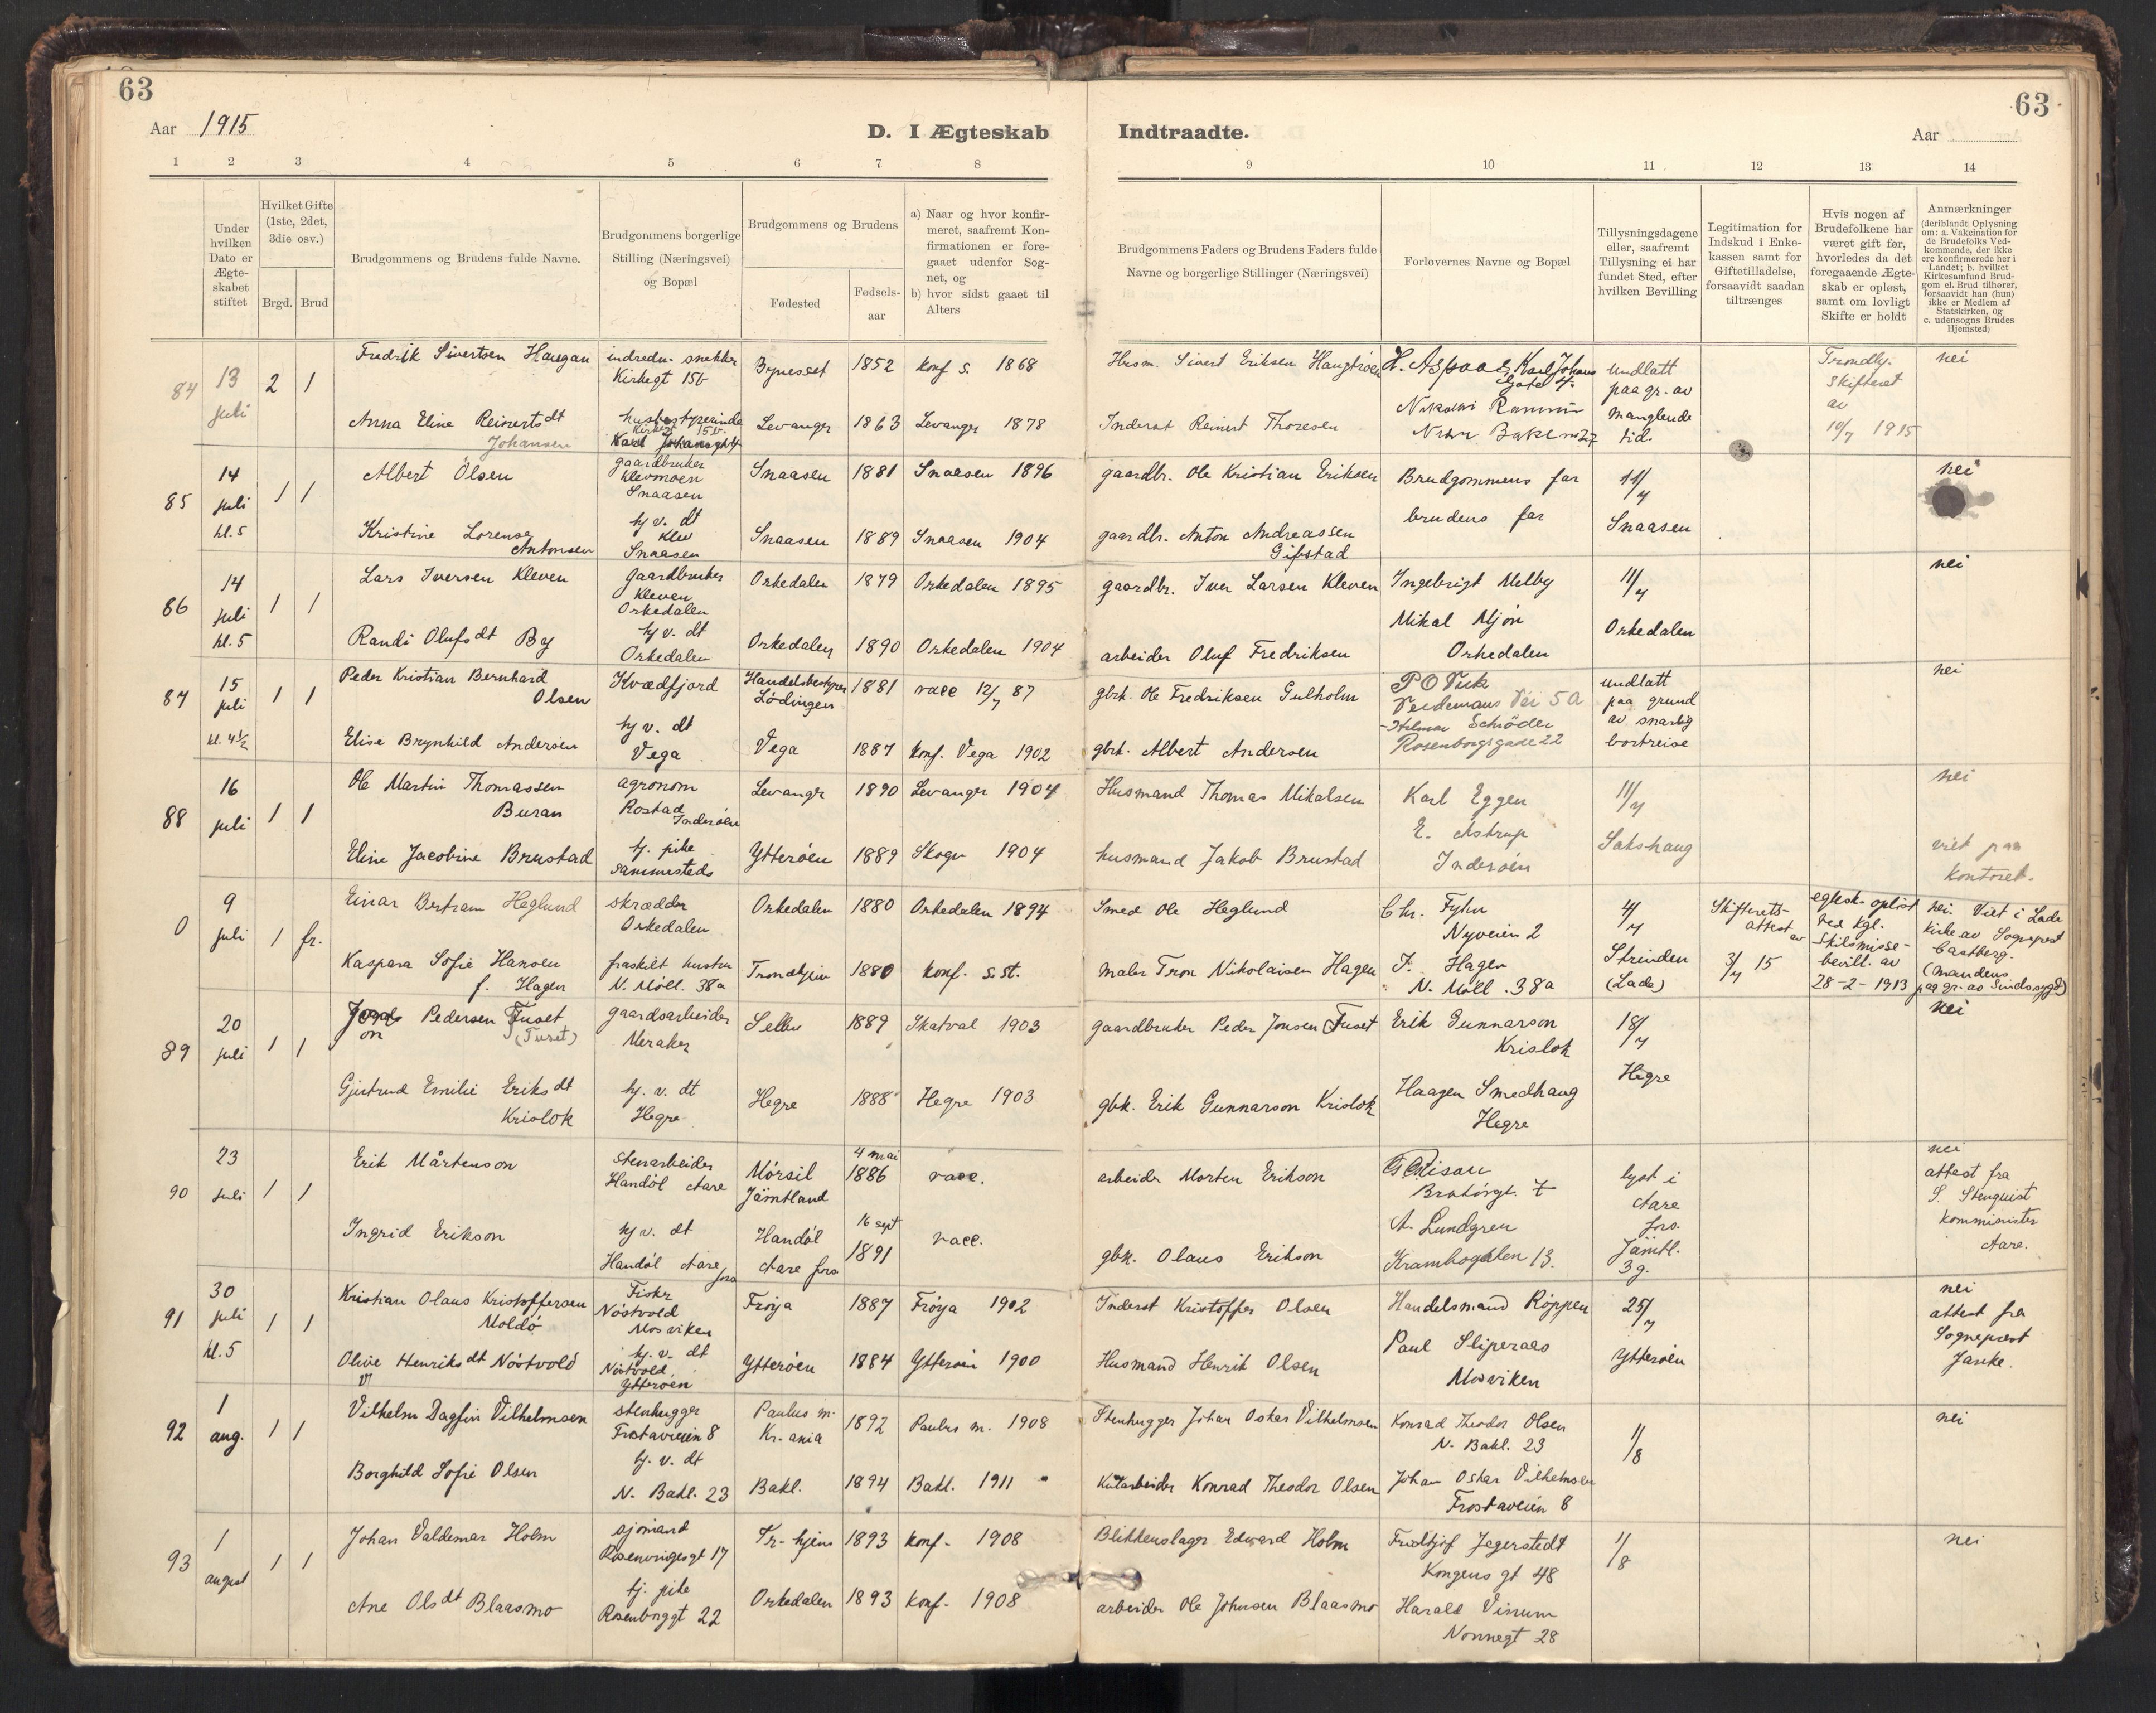 63
63
Aar 1915
D. I Ægteskab
Indtraadte.
Aar
1 2 3 4 5 6 7 8 9 10 11 12 13 14
Under hvilken Dato er Ægte-skabet stiftet
Hvilket Gifte (1ste, 2det, 3die osv.)
Brgd. Brud
Brudgommens og Brudens fulde Navne.
Brudgommens borgerlige
Stilling (Næringsvei)
og Bopæl
Brudgommens og Brudens
Fødested
Fødsels-
aar
a) Naar og hvor konfir-
meret, saafremt Kon-
firmationen er fore-
gaaet udenfor Sog-
net, og
b) hvor sidst gaaet til
Alters
Brudgommens Faders og Brudens Faders fulde
Navne og borgerlige Stillinger (Næringsvei)
Forlovernes Navne og Bopæl
Tillysningsdagene
eller, saafremt
Tillysning ei har
fundet Sted, efter
hvilken Bevilling
Legitimation for
Indskud i Enke-
kassen samt for
Giftetilladelse,
forsaavidt saadan
tiltrænges
Hvis nogen af
Brudefolkene har
været gift før,
hvorledes da det
foregaaende Ægte-
skab er opløst,
samt om lovligt
Skifte er holdt
Anmærkninger
(deriblandt Oplysning
om: a. Vakcination for
de Brudefolks Ved-
kommende, der ikke
ere konfirmerede her i
Landet; b. hvilket
Kirkesamfund Brud-
gom el. Brud tilhører,
forsaavidt han (hun)
ikke er Medlem af
Statskirken, og
c. udensogns Brudes
Hjemsted)
84
13
juli
2 1
Fredrik Sivertsen Haugan
indredn. snekker
Kirkegt 15b
Bynesset 1852 konf s. 1868
Husm. Sivert Eriksen
H. Aspaas, Karl Johans
Gate 4.
undlatt
paa gr. av
manglende
tid.
Trondhj.
skifteret
av
10/7 1915
nei
Anna Eline Reinertsdt
Johansen
husbestyrerinde
Levanger 1863 Levanger 1878
Inderst Reinert Thoresen
85
14
juli
kl. 5
1 1
Albert Olsen
gaardbruker
Klevmoen
Snaasen
Snaasen 1881 Snaasen 1896
gaardbr. Ole Kristian Eriksen
Brudgommens far
brudens far
11/7
Snaasen
nei
Kristine Lorense
Antonsen
hj v. dt
Klev
Snaasen
Snaasen 1889 Snaasen 1904
gaardbr. Anton Andreassen
Gifstad
86
14
juli
kl. 5
1 1
Lars Iversen Kleven
Gaardbruker
Kleven
Orkedalen
Orkedalen 1879 Orkedalen 1895
gaardbr. Iver Larsen Kleven
Ingebrigt Melby
Mikal Mjøn
Orkedalen
11/7
Orkedalen
nei
Randi Olufsdt By
hj v. dt
Orkedalen
Orkedalen 1890 Orkedalen 1904
arbeider Oluf Fredriksen
87
15
juli
kl. 4½
1 1
Peder Kristian Bernhard
Olsen
Kvædfjord
Handelsbestyrer
Lødingen
1881 vacc 12/7 87
gbrk. Ole Fredriksen Gulholm
Veidemans Vei 5a
Hilmar Schrøder
Rosenborgsgade 22
undlatt
paa grund
av snarlig
bortreise
nei
Elise Brynhild Andersen
hj v. dt
Vega
Vega 1887 konf. Vega 1902
gbrk. Albert Andersen
88
16
juli
1 1
Ole Martin Thomassen
Buran
agronom
Rostad
Inderøen
Levanger 1890 Levanger 1904
Husmand Thomas Mikalsen
Karl Eggen
E. Astrup
Inderøen
11/7
Sakshaug
nei
viet paa
kontoret.
Eline Jacobine Brustad
tj. pike
sammesteds
Ytterøen 1889 Skogn 1904
husmand Jakob Brustad
0
9
juli
1 fr.
Einar Bertram Heglund
skrædder
Orkedalen
Orkedalen 1880 Orkedalen 1894
Smed Ole Heglund
Chr. Fyhn
Nyveien 2
4/7
Strinden
(Lade)
Skifterets-
attest av
3/7 15
egtesk. opløst
ved Kgl.
skilsmisse-
bevill. av
28-2-1913
nei. Viet i Lade
kirke av Sogneprest
Castberg.
(mandens
paa gr. av Sindssygd)
Kaspara Sofie Hansen
f. Hagen
fraskilt hustru
N. Møll. 38a
Trondhjem 1880 konf. s. st.
maler Tron Nikolaisen Hagen
F. Hagen
N. Møll. 38a
89
20
juli
1 1
Jon Pedersen Fuset
(Turet)
gaardsarbeider
Meraker
Selbu 1889 Skatval 1903
gaardbruker Peder Jonsen Fuset
Erik Gunnarson
Krislok
18/7
Hegre
nei
Gjertrud Emilie Eriksdt
Krislok
hj. v. dt
Hegre
Hegre 1888 Hegre 1903
gbk. Erik Gunnarson Krislok
Haagen Smedhaug
Hegre
90
23
juli
1 1
Erik Mårtenson
stenarbeider
Handöl Aare
Mörsil
Jämtland
4 mai
1886
vacc.
arbeider Morten Erikson
Bratørgt. 7
A. Lundgren
Krambogaten 13.
lyst i
Aare
fors.
Jämtl.
3 g.
nei
attest fra
S. Stenquist
kommi­nister
Aare.
Ingrid Erikson
hj v. dt
Handöl Aare
fors
Handöl
Aare fors
16 sept
1891
vacc.
gbk. Olaus Erikson
91
30
juli
kl. 5
1 1
Kristian Olaus Kristoffersen
Moldø
Fisker
Nøstvold
Mosviken
Frøya 1887 Frøya 1902
Inderst Kristoffer Olsen
Handelsmand Røppen
Paul Sliperaas
Mosviken
25/7
Ytterøen
nei
attest fra
Sogneprest
Janke.
Olive Henriksdt Nøstvold
hj. v. dt
Nøstvold
Ytterøen
Ytterøen 1884 Ytterøen 1900
Husmand Henrik Olsen
92
1
aug.
1 1
Vilhelm Dagfin Vilhelmsen
stenhugger
Frostaveien 8
Paulus m.
Kr.ania
1892 Paulus m. 1908
Stenhugger Johan Oskar Vilhelmsen
Konrad Theodor Olsen
N. Bakl. 23
1/8
nei
Borghild Sofie Olsen
hj. v. dt
N. Bakl. 23
Bakl. 1894 Bakl. 1911
Konrad Theodor Olsen
Johan Oskar Vilhelmsen
Frostaveien 8
93
1
august
1 1
Johan Valdemar Holm
sjømand
Tr-hjem 1893 konf. 1908
Blikkenslager Edward Holm
Fridtjof Jegerstedt
Kongens gt 48
1/8
nei
Ane Olsdt Blaasmo
tj. pike
Rosenborggt 22
Orkedalen 1893 konf. 1908
arbeider Ole Johnsen Blaasmo
Harald Vinum
Nonnegt 28